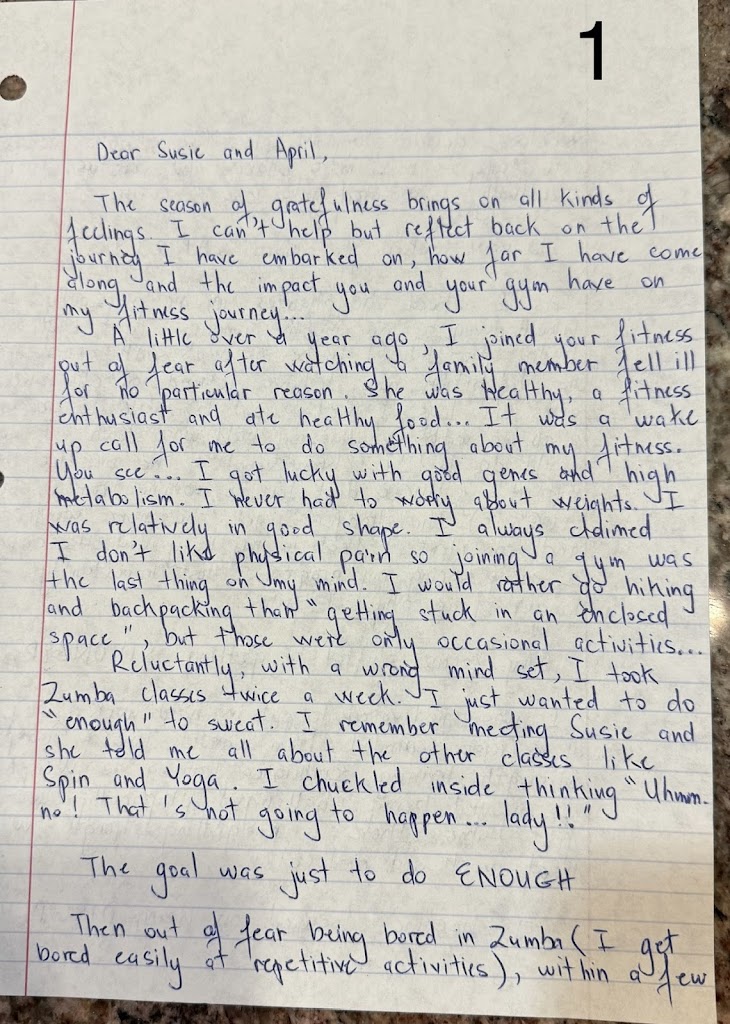 1
Dear Susie and April,
The season of gratefulness brings on all kinds of
feelings. I can't help but reflect back on the
journey I have embarked on, how far I have come
along and the impact you and your gym have on
my fitness journey...
A little over a year ago, I joined your fitness
out of fear after watching a family member fell ill
for no particular reason. She was healthy, a fitness
enthusiast and ate healthy food... It was a wake
up call for me to do something about my fitness.
You see... I got lucky with good genes and high
metabolism. I never had to worry about weights. I
was relatively in good shape. I always claimed
I don't like physical pain so joining a gym was
the last thing on my mind. I would rather go hiking
and backpacking than "getting stuck in an enclosed
space", but those were only occasional activities...
Reluctantly, with a wrong mind set, I took
Zumba classes twice a week. I just wanted to do
"enough" to sweat. I remember meeting Susie and
she told me all about the other classes like
Spin and Yoga. I chuckled inside thinking "Uhmm..
no! That's not going to happen... lady!!"
The goal was just to do ENOUGH
Then out of fear being bored in Zumba (I get
bored easily at repetitive activities), within a few